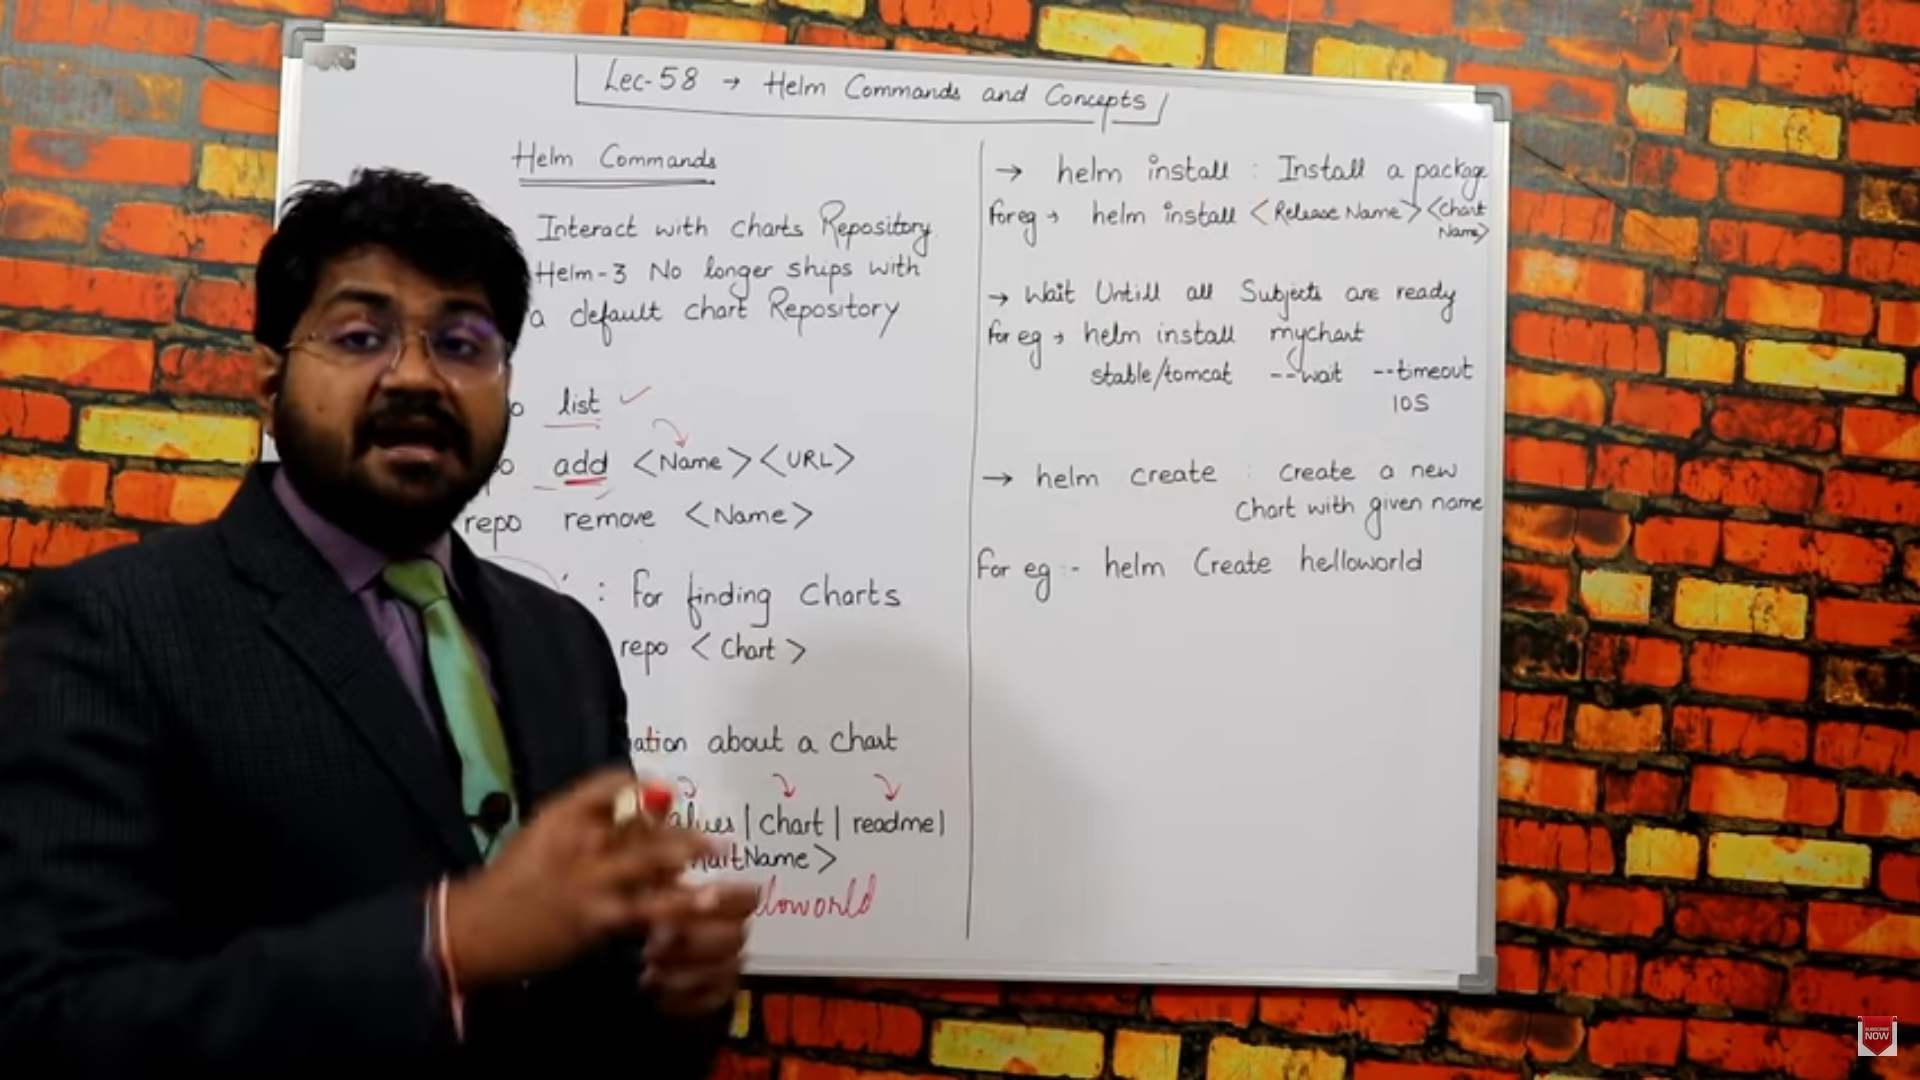 Lec-58 → Helm Commands and Concepts
Helm Commands
Interact with charts Repository
Helm-3 No longer ships with
a default chart Repository
list ✓
add <Name> <URL>
repo remove <Name>
: For finding Charts
repo <Chart>
about a chart
| Chart | readme |
→ helm install : Install a package
For eg → helm install <Release Name> <Chart
Name>
→ Wait Untill all Subjects are ready
For eg → helm install mychart
stable/tomcat --wait --timeout
10S
→ helm create : Create a new
Chart with given name
For eg :- helm Create helloworld
SUBSCRIBE
NOW